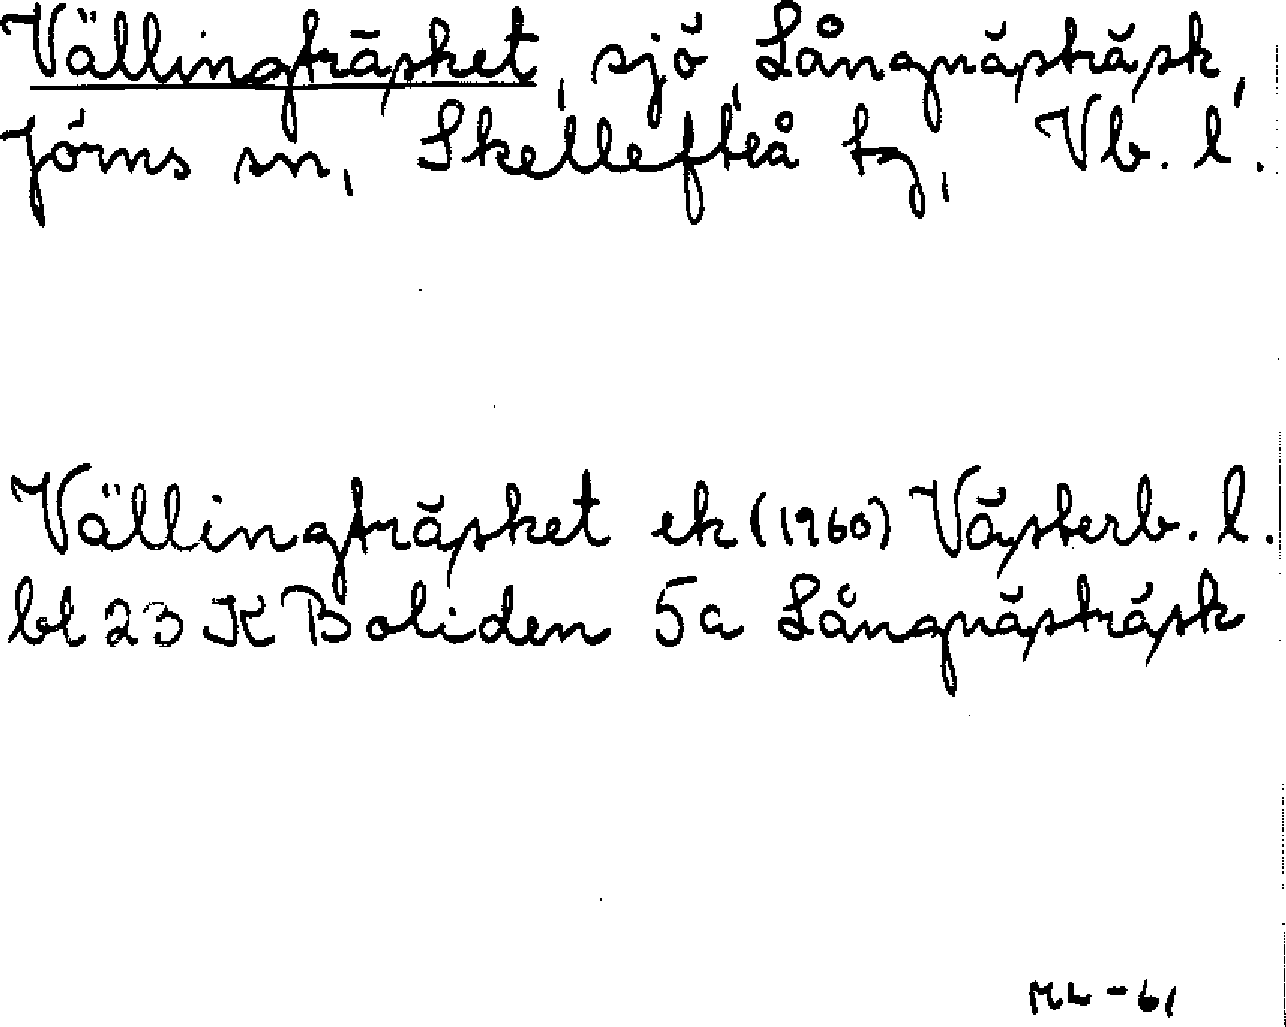 Vällingträsket, sjö, Långnästräsk,
Jörns sn, Skellefteå tg, Vb. l.
Vällingträsket ek (1960) Västerb. l.
bl 23 K Boliden 5a Långnästräsk
ML-61